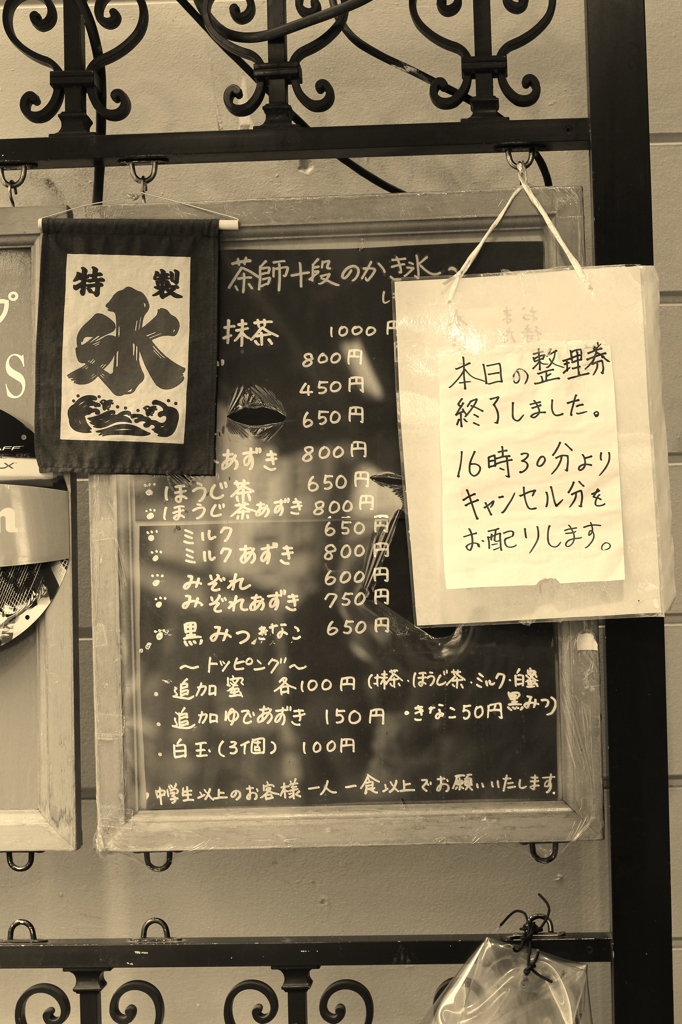 特製
氷
茶師十段のかき氷
抹茶 1000円
800円
450円
650円
あずき 800円
ほうじ茶 650円
ほうじ茶あずき 800円
ミルク 650円
ミルクあずき 800円
みぞれ 600円
みぞれあずき 750円
黒みつきなこ 650円
～トッピング～
・追加蜜 各100円 (抹茶・ほうじ茶・ミルク・白蜜
黒みつ)
・追加ゆであずき 150円 ・きなこ50円
・白玉(3個) 100円
中学生以上のお客様一人一食以上でお願いいたします。
本日の整理券
終了しました。
16時30分より
キャンセル分を
お配りします。